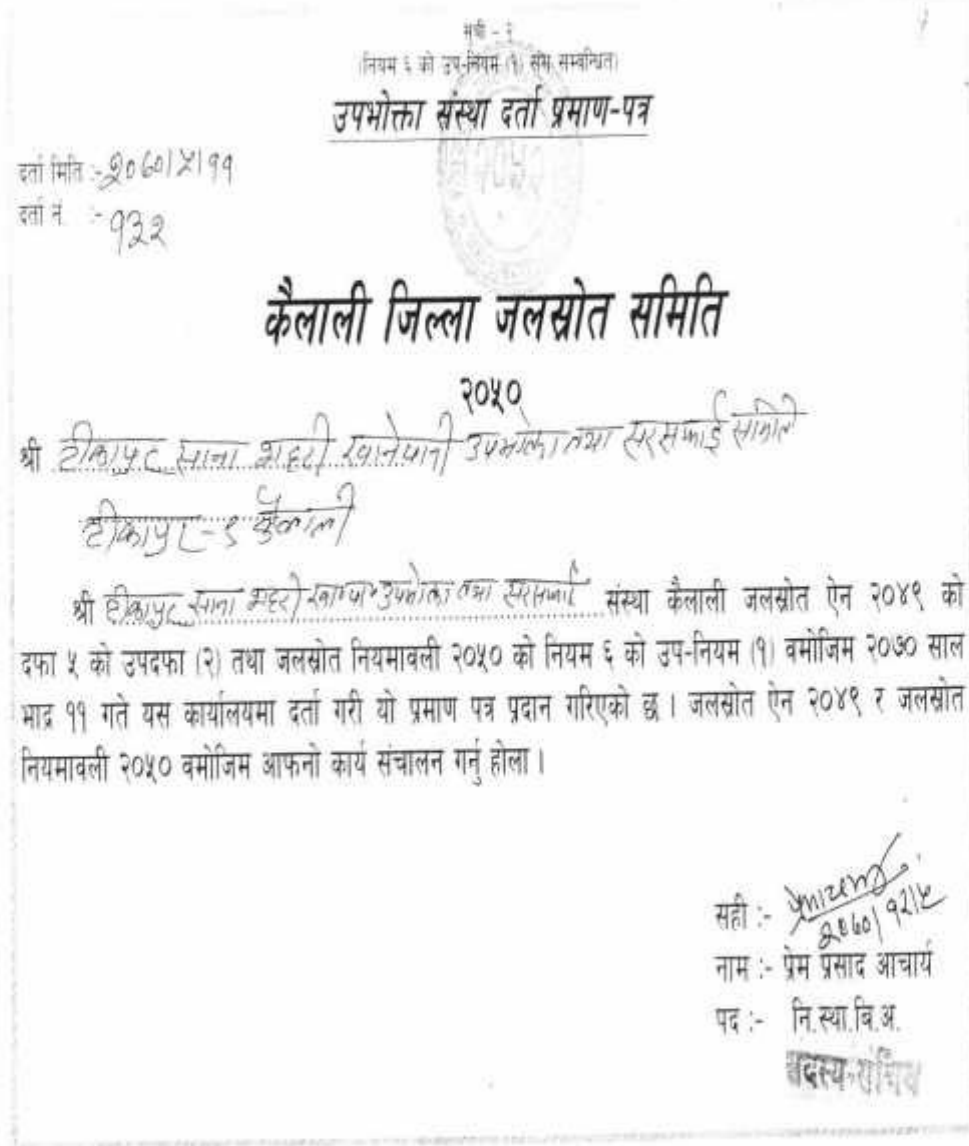 सूची - २
(नियम ६ को उप-नियम (१) संग सम्बन्धित)
उपभोक्ता संस्था दर्ता प्रमाण-पत्र
दर्ता मिति :- २०७०।५।११
दर्ता नं. :- १३२
कैलाली जिल्ला जलस्रोत समिति
२०५०
श्री टीकापुर साना शहरी खानेपानी उपभोक्ता तथा सरसफाई समिति
टीकापुर-९ कैलाली
श्री टीकापुर साना शहरी खा॰पा॰ उपभोक्ता तथा सरसफाई संस्था कैलाली जलस्रोत ऐन २०४९ को
दफा ५ को उपदफा (२) तथा जलस्रोत नियमावली २०५० को नियम ६ को उप-नियम (१) वमोजिम २०७० साल
भाद्र ११ गते यस कार्यालयमा दर्ता गरी यो प्रमाण पत्र प्रदान गरिएको छ । जलस्रोत ऐन २०४९ र जलस्रोत
नियमावली २०५० वमोजिम आफनो कार्य संचालन गर्नु होला ।
सही :-
२०७०।१२।५
नाम :- प्रेम प्रसाद आचार्य
पद :- नि.स्था.बि.अ.
सदस्य-सचिव